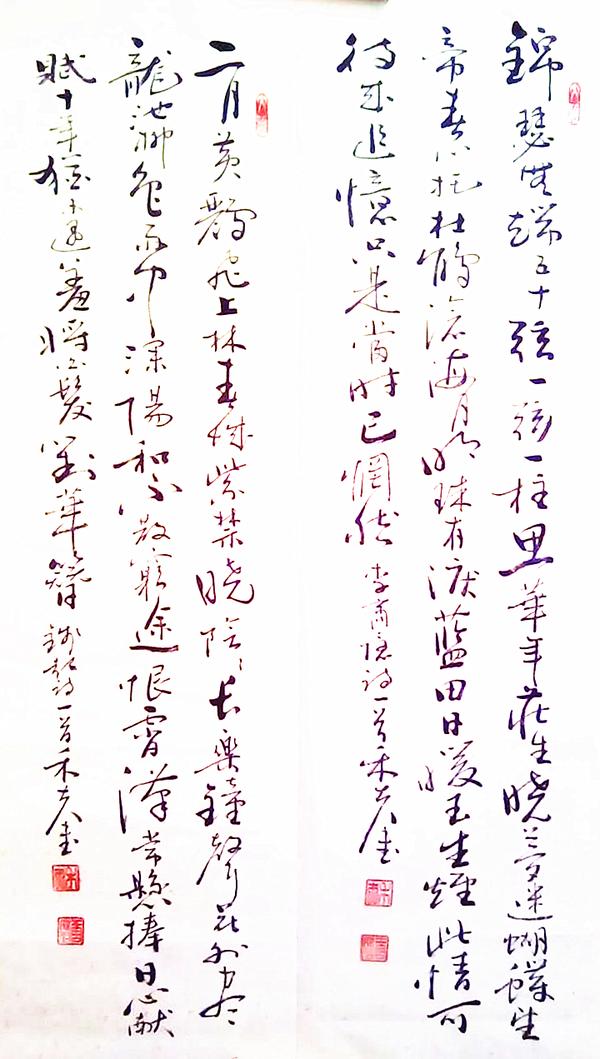 錦瑟無端五十弦一弦一柱思華年莊生曉夢迷蝴蝶望
帝春心托杜鵑滄海月明珠有淚藍田日暖玉生煙此情可
待成追憶只是當時已惘然 李商隱詩一首
二月黃鸝飛上林春城紫禁曉陰陰長樂鐘聲花外盡
龍池柳色雨中深陽和不散窮途恨霄漢常懸捧日心獻
賦十年猶未遇羞將白髮對華簪 錢起詩一首